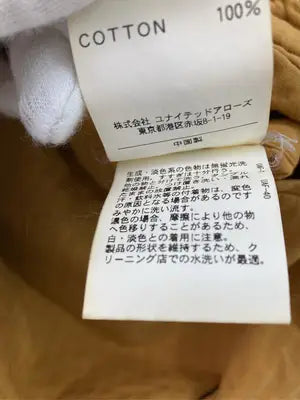 COTTON 100%
株式会社 ユナイテッドアローズ
東京都港区赤坂8-1-19
中国製
生成・淡色系の色物は無蛍光洗
汗・飲料水等の付着物は、変色
の原因となる場合がありますので
すみやかに洗い流す。
濃色の場合、摩擦により他の物
へ色移りすることがあるため、
白・淡色との着用に注意。
製品の形状を維持するため、ク
リーニング店での水洗いが最適。